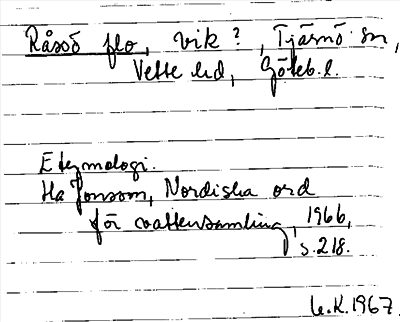 Råssö flo, vik?, Tjärnö sn,
Vette hd, Göteb. l.
Etymologi.
Ha Jonsson, Nordiska ord
för vattensamling, 1966,
s. 218.
K. 1967